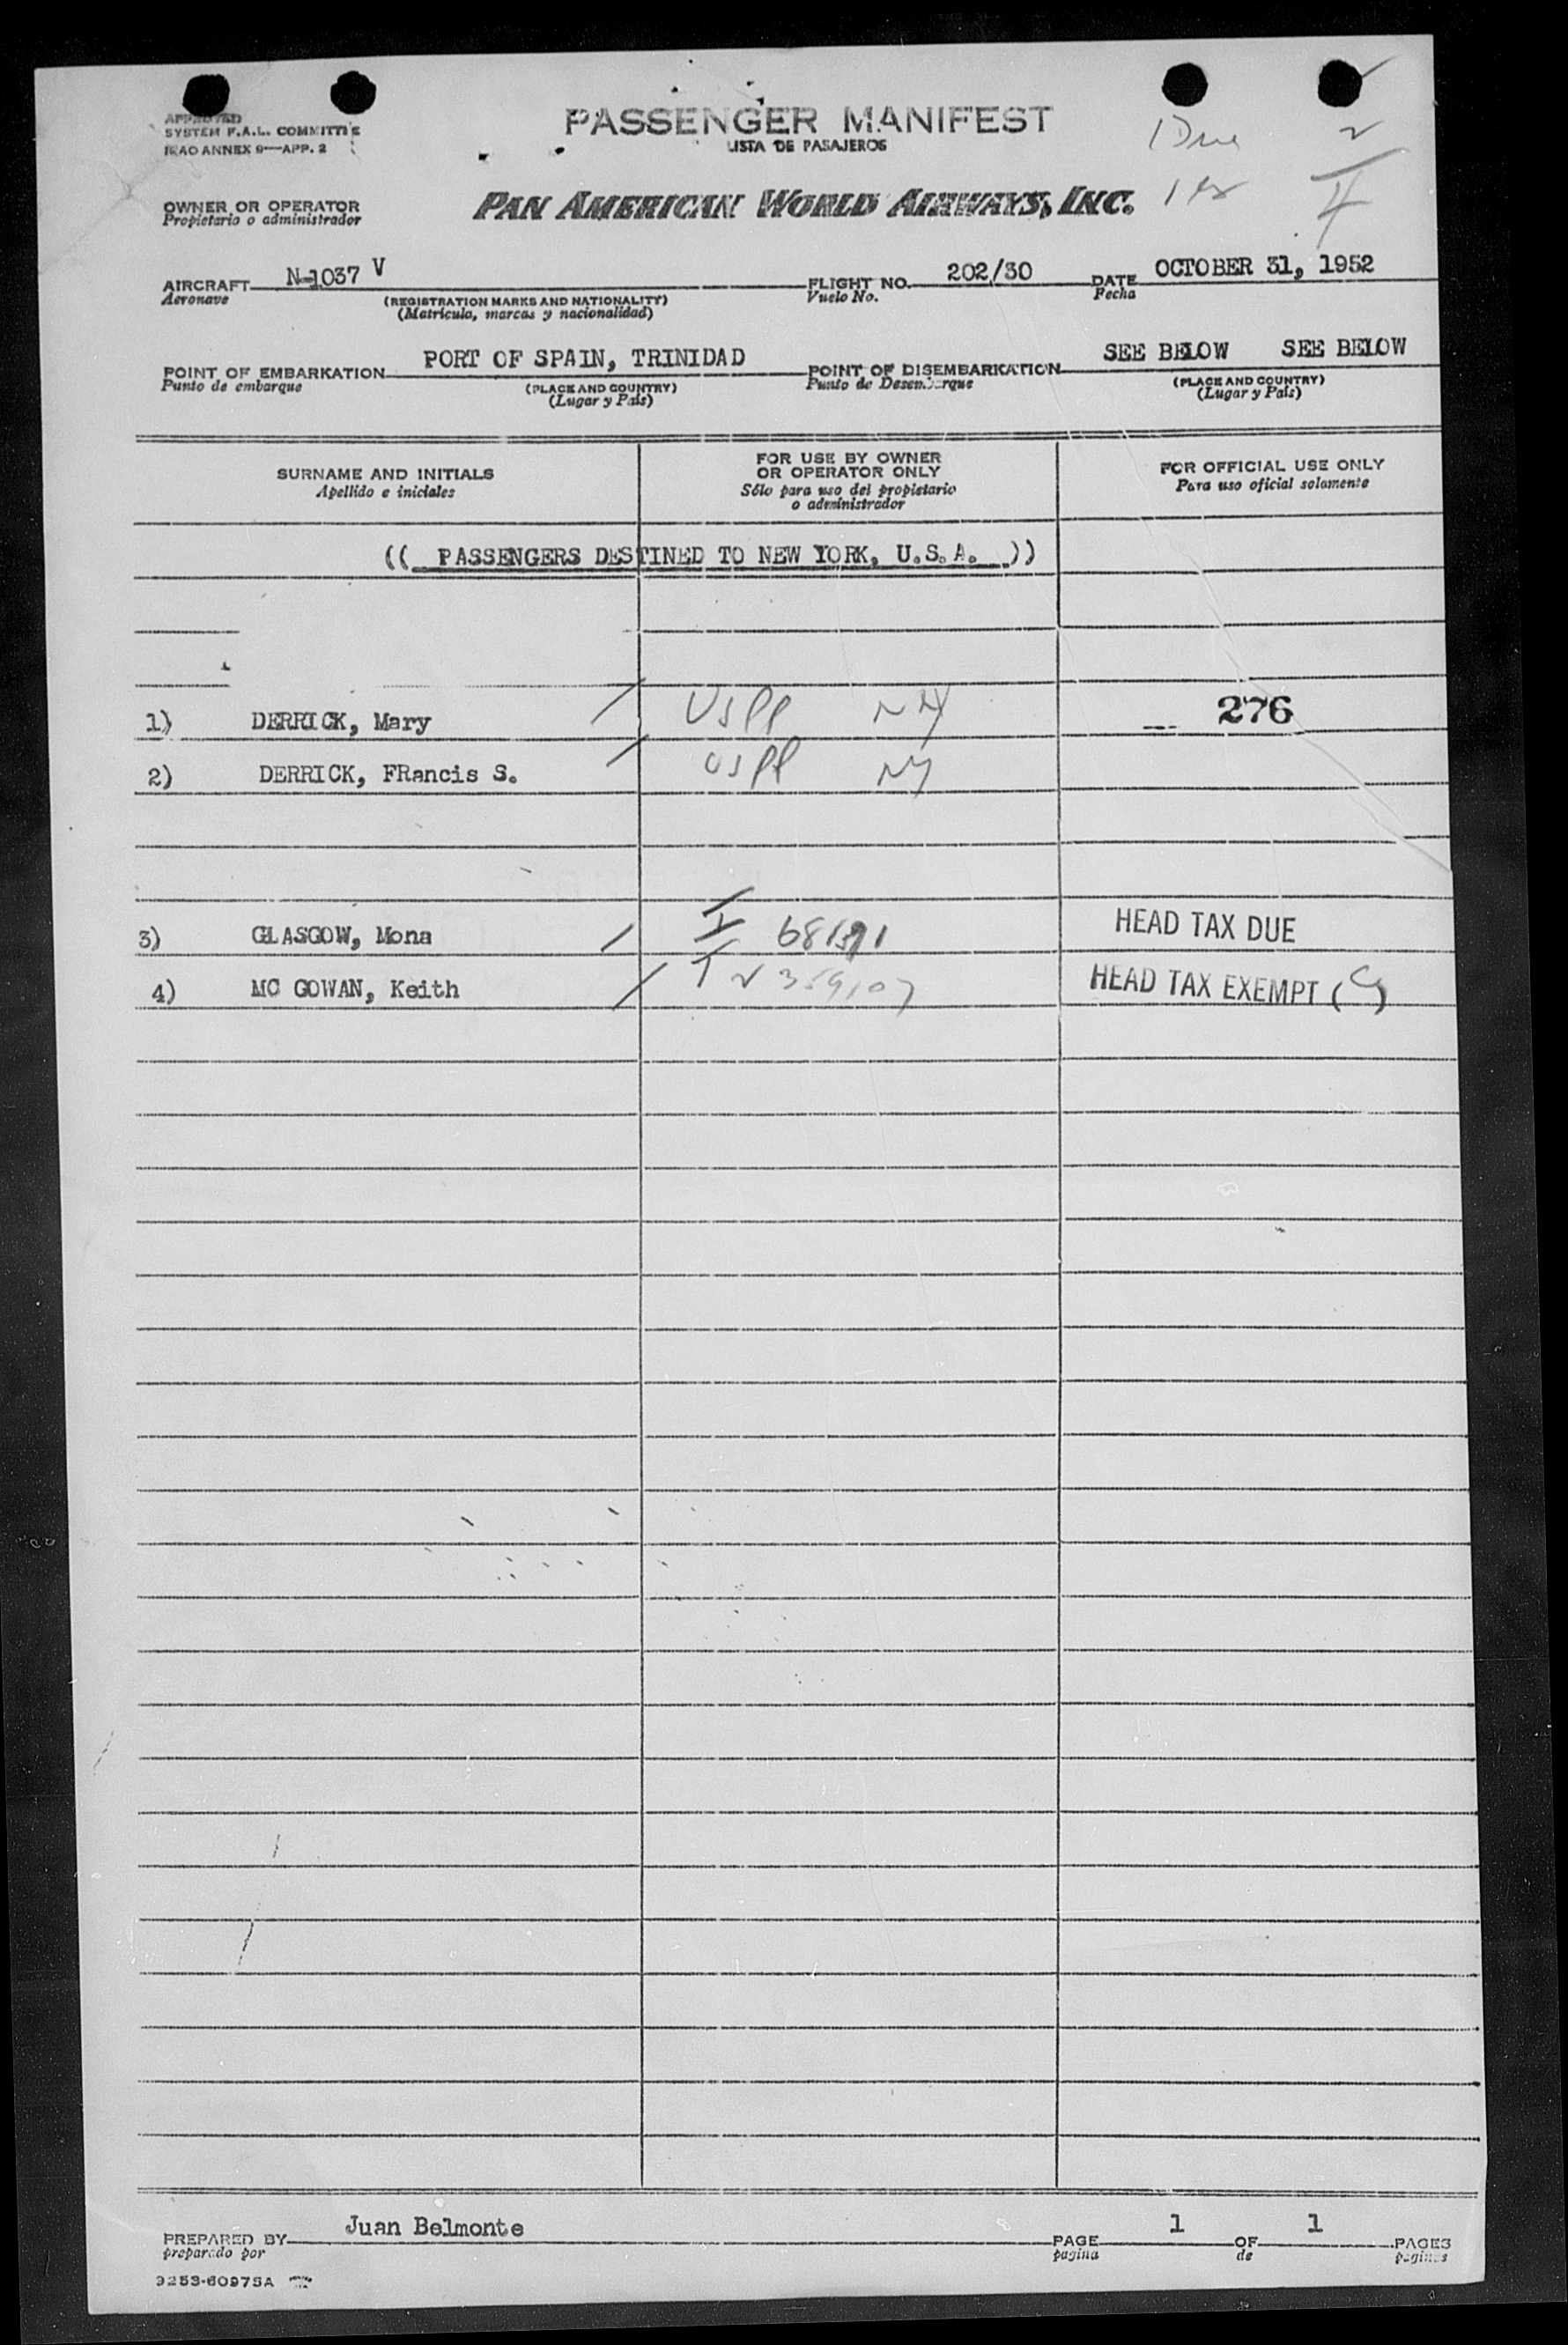 APPROVED
SYSTEM F.A.L. COMMITTEE
ICAO ANNEX 9—APP. 2
PASSENGER MANIFEST
LISTA DE PASAJEROS
1 Due
2
1 ex
4
OWNER OR OPERATOR
Propietario o administrador
PAN AMERICAN WORLD AIRWAYS, INC.
AIRCRAFT N-1037 V FLIGHT NO. 202/30 DATE OCTOBER 31, 1952
Aeronave (REGISTRATION MARKS AND NATIONALITY) Vuelo No. Fecha
(Matrícula, marcas y nacionalidad)
POINT OF EMBARKATION PORT OF SPAIN, TRINIDAD POINT OF DISEMBARKATION SEE BELOW SEE BELOW
Punto de embarque (PLACE AND COUNTRY) Punto de Desembarque (PLACE AND COUNTRY)
(Lugar y País) (Lugar y País)
SURNAME AND INITIALS
Apellido e iniciales
FOR USE BY OWNER
OR OPERATOR ONLY
Sólo para uso del propietario
o administrador
FOR OFFICIAL USE ONLY
Para uso oficial solamente
(( PASSENGERS DESTINED TO NEW YORK, U.S.A. ))
1) DERRICK, Mary / USPP NY 276
2) DERRICK, FRancis S. / USPP NY
3) GLASGOW, Mona / I HEAD TAX DUE
4) MC GOWAN, Keith / V 359107 HEAD TAX EXEMPT (
PREPARED BY Juan Belmonte PAGE 1 OF 1 PAGES
preparado por pagina de paginas
9253-60975A